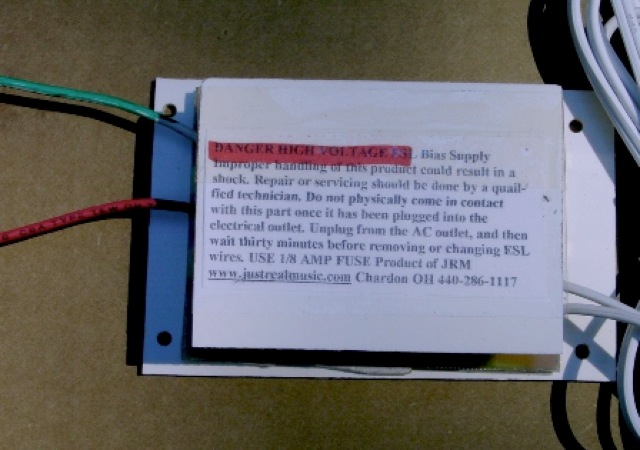 DANGER HIGH VOLTAGE ESL Bias Supply
Improper handling of this product could result in a
shock. Repair or servicing should be done by a quail-
fied technician. Do not physically come in contact
with this part once it has been plugged into the
electrical outlet. Unplug from the AC outlet, and then
wait thirty minutes before removing or changing ESL
wires. USE 1/8 AMP FUSE Product of JRM
www.justrealmusic.com Chardon OH 440-286-1117